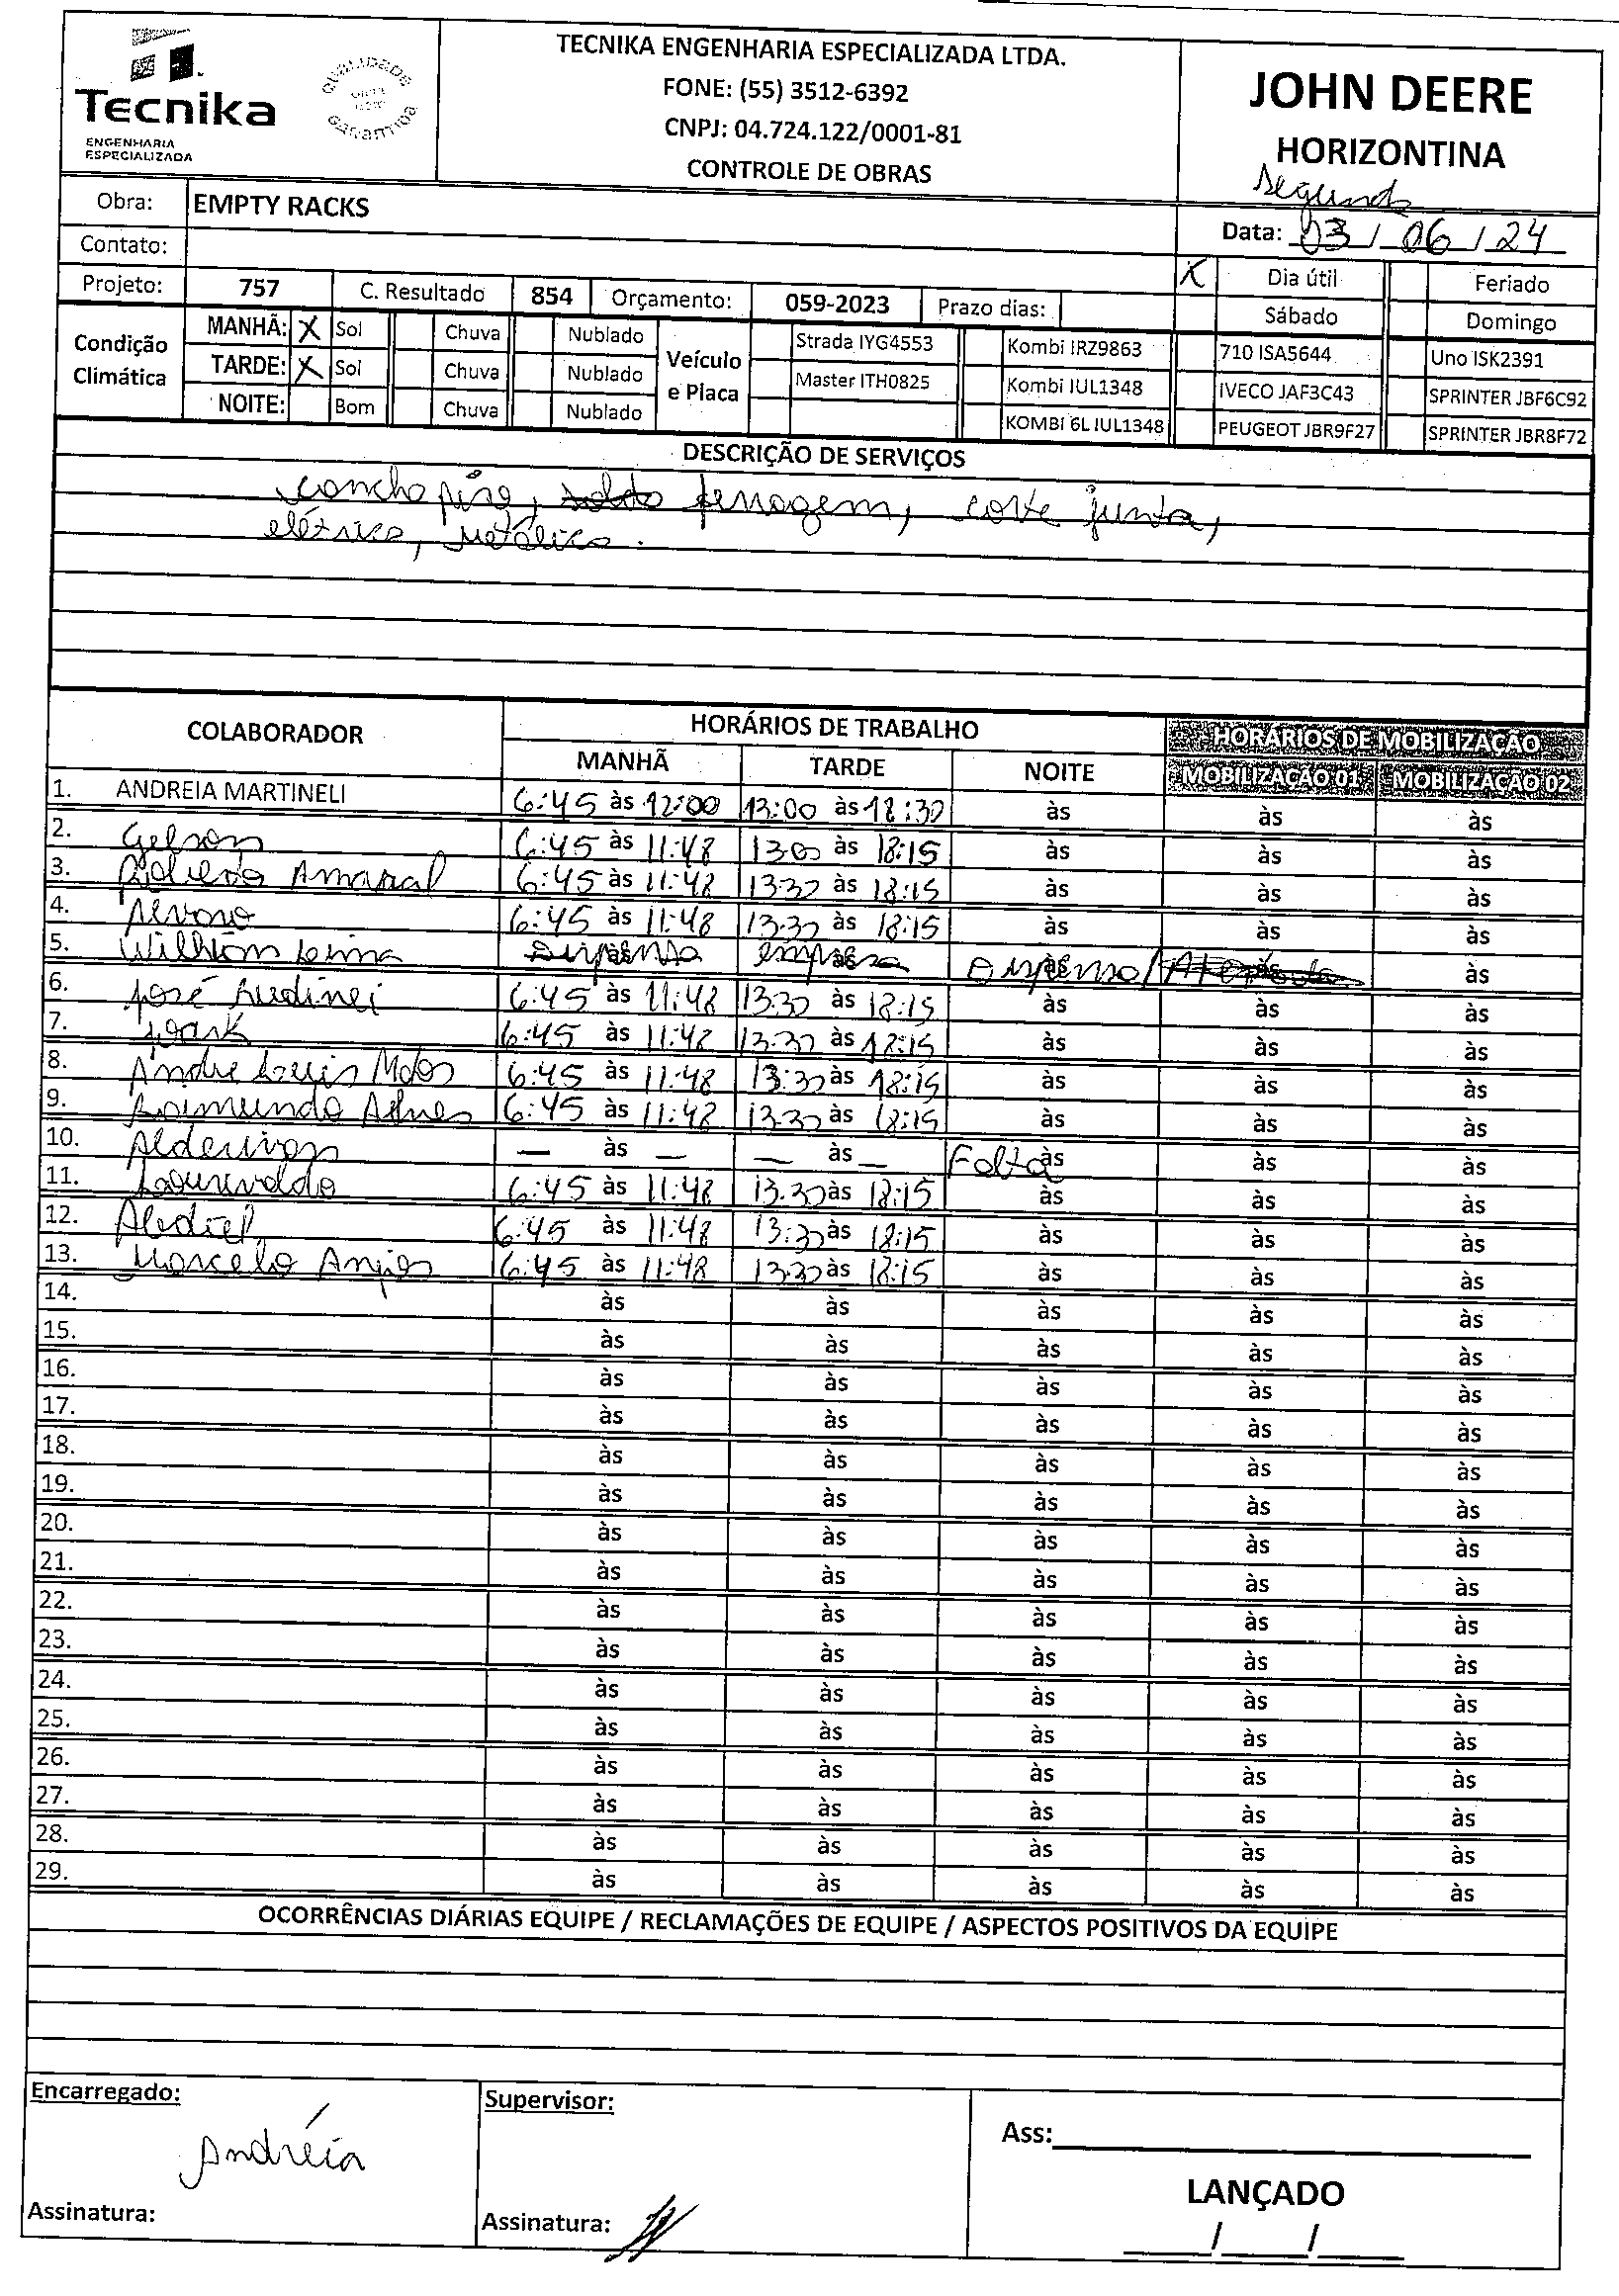 Tecnika
ENGENHARIA
ESPECIALIZADA
QUALIDADE
GARANTIDA
TECNIKA ENGENHARIA ESPECIALIZADA LTDA.
FONE: (55) 3512-6392
CNPJ: 04.724.122/0001-81
CONTROLE DE OBRAS
JOHN DEERE
HORIZONTINA
Segunda
Obra: EMPTY RACKS
Data: 03/06/24
Contato:
X Dia útil Feriado
Projeto: 757 C. Resultado 854 Orçamento: 059-2023 Prazo dias: Sábado Domingo
Condição Climática
MANHÃ: X Sol Chuva Nublado
TARDE: X Sol Chuva Nublado
NOITE: Bom Chuva Nublado
Veículo e Placa
Strada IYG4553 Kombi IRZ9863 710 ISA5644 Uno ISK2391
Master ITH0825 Kombi IUL1348 IVECO JAF3C43 SPRINTER JBF6C92
KOMBI 6L IUL1348 PEUGEOT JBR9F27 SPRINTER JBR8F72
DESCRIÇÃO DE SERVIÇOS
concha piso, ferragem, corte junta,
elétrica, metálica.
COLABORADOR HORÁRIOS DE TRABALHO HORÁRIOS DE MOBILIZAÇÃO
MANHÃ TARDE NOITE MOBILIZAÇÃO 01 MOBILIZAÇÃO 02
1. ANDREIA MARTINELI 6:45 às 12:00 13:00 às 18:30 às às às
2. Gelson 6:45 às 11:48 13:00 às 18:15 às às às
3. Amaral 6:45 às 11:48 13:30 às 18:15 às às às
4. 6:45 às 11:48 13:30 às 18:15 às às às
5. Willian Lima Dispensa empresa Dispensa/ às
6. José Ludinei 6:45 às 11:48 13:30 às 18:15 às às às
7. 6:45 às 11:48 13:30 às 18:15 às às às
8. Andre Luis 6:45 às 11:48 13:30 às 18:15 às às às
9. Raimundo Alves 6:45 às 11:48 13:30 às 18:15 às às às
10. Alderivan — às — — às — Falta às às às
11. Lourivaldo 6:45 às 11:48 13:30 às 18:15 às às às
12. Alediel 6:45 às 11:48 13:30 às 18:15 às às às
13. Marcelo Anjos 6:45 às 11:48 13:30 às 18:15 às às às
14. às às às às às
15. às às às às às
16. às às às às às
17. às às às às às
18. às às às às às
19. às às às às às
20. às às às às às
21. às às às às às
22. às às às às às
23. às às às às às
24. às às às às às
25. às às às às às
26. às às às às às
27. às às às às às
28. às às às às às
29. às às às às às
OCORRÊNCIAS DIÁRIAS EQUIPE / RECLAMAÇÕES DE EQUIPE / ASPECTOS POSITIVOS DA EQUIPE
Encarregado: Supervisor:
Ass:
Andréia
LANÇADO
Assinatura: Assinatura:
/ /